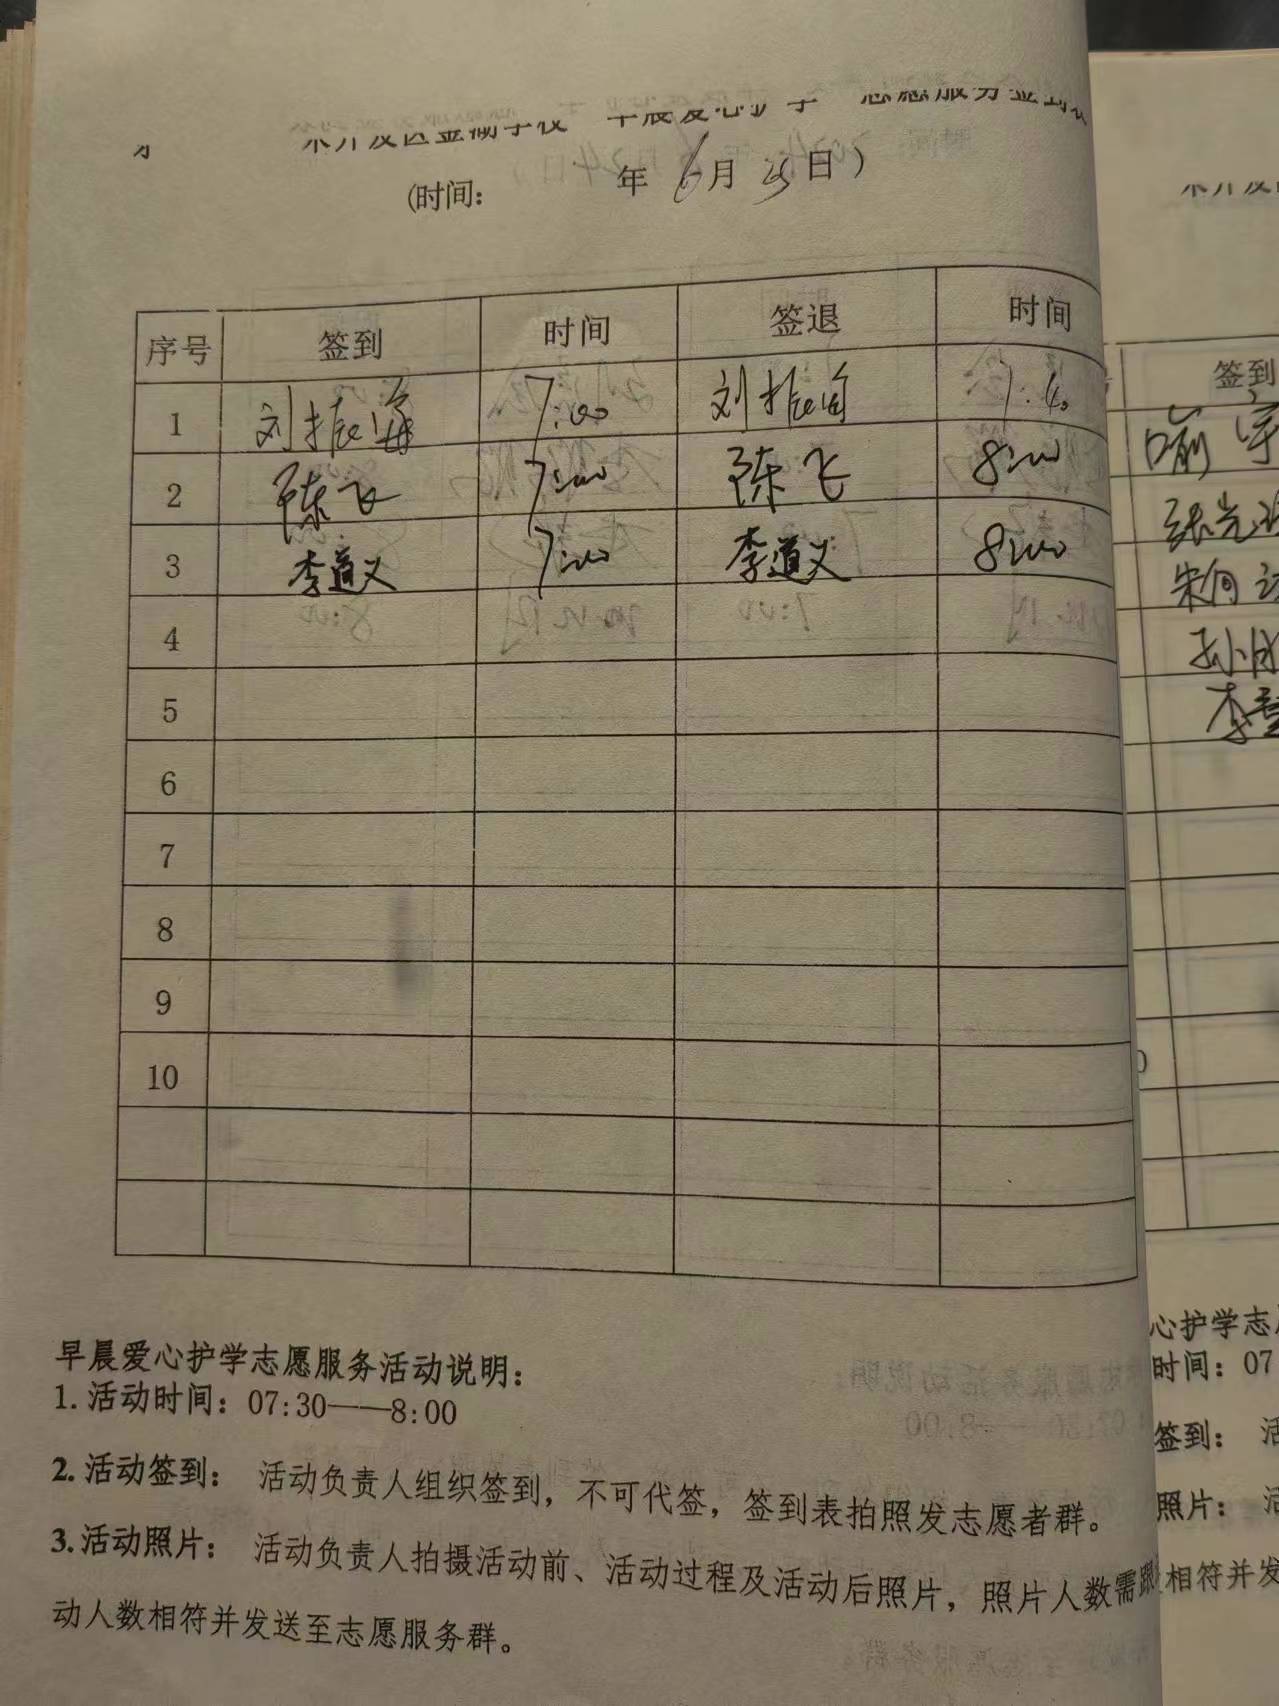 (时间: 年6月25日)
序号 签到 时间 签退 时间
1 刘振海 7:00 刘振海 7:40
2 陈飞 7:00 陈飞 8:00
3 李道义 7:00 李道义 8:00
4
5
6
7
8
9
10
早晨爱心护学志愿服务活动说明:
1.活动时间: 07:30——8:00
2.活动签到: 活动负责人组织签到,不可代签,签到表拍照发志愿者群。
3.活动照片: 活动负责人拍摄活动前、活动过程及活动后照片,照片人数需跟
动人数相符并发送至志愿服务群。
签到
喻宇
孙成
心护学志
时间: 07
签到: 活
照片: 活
相符并发